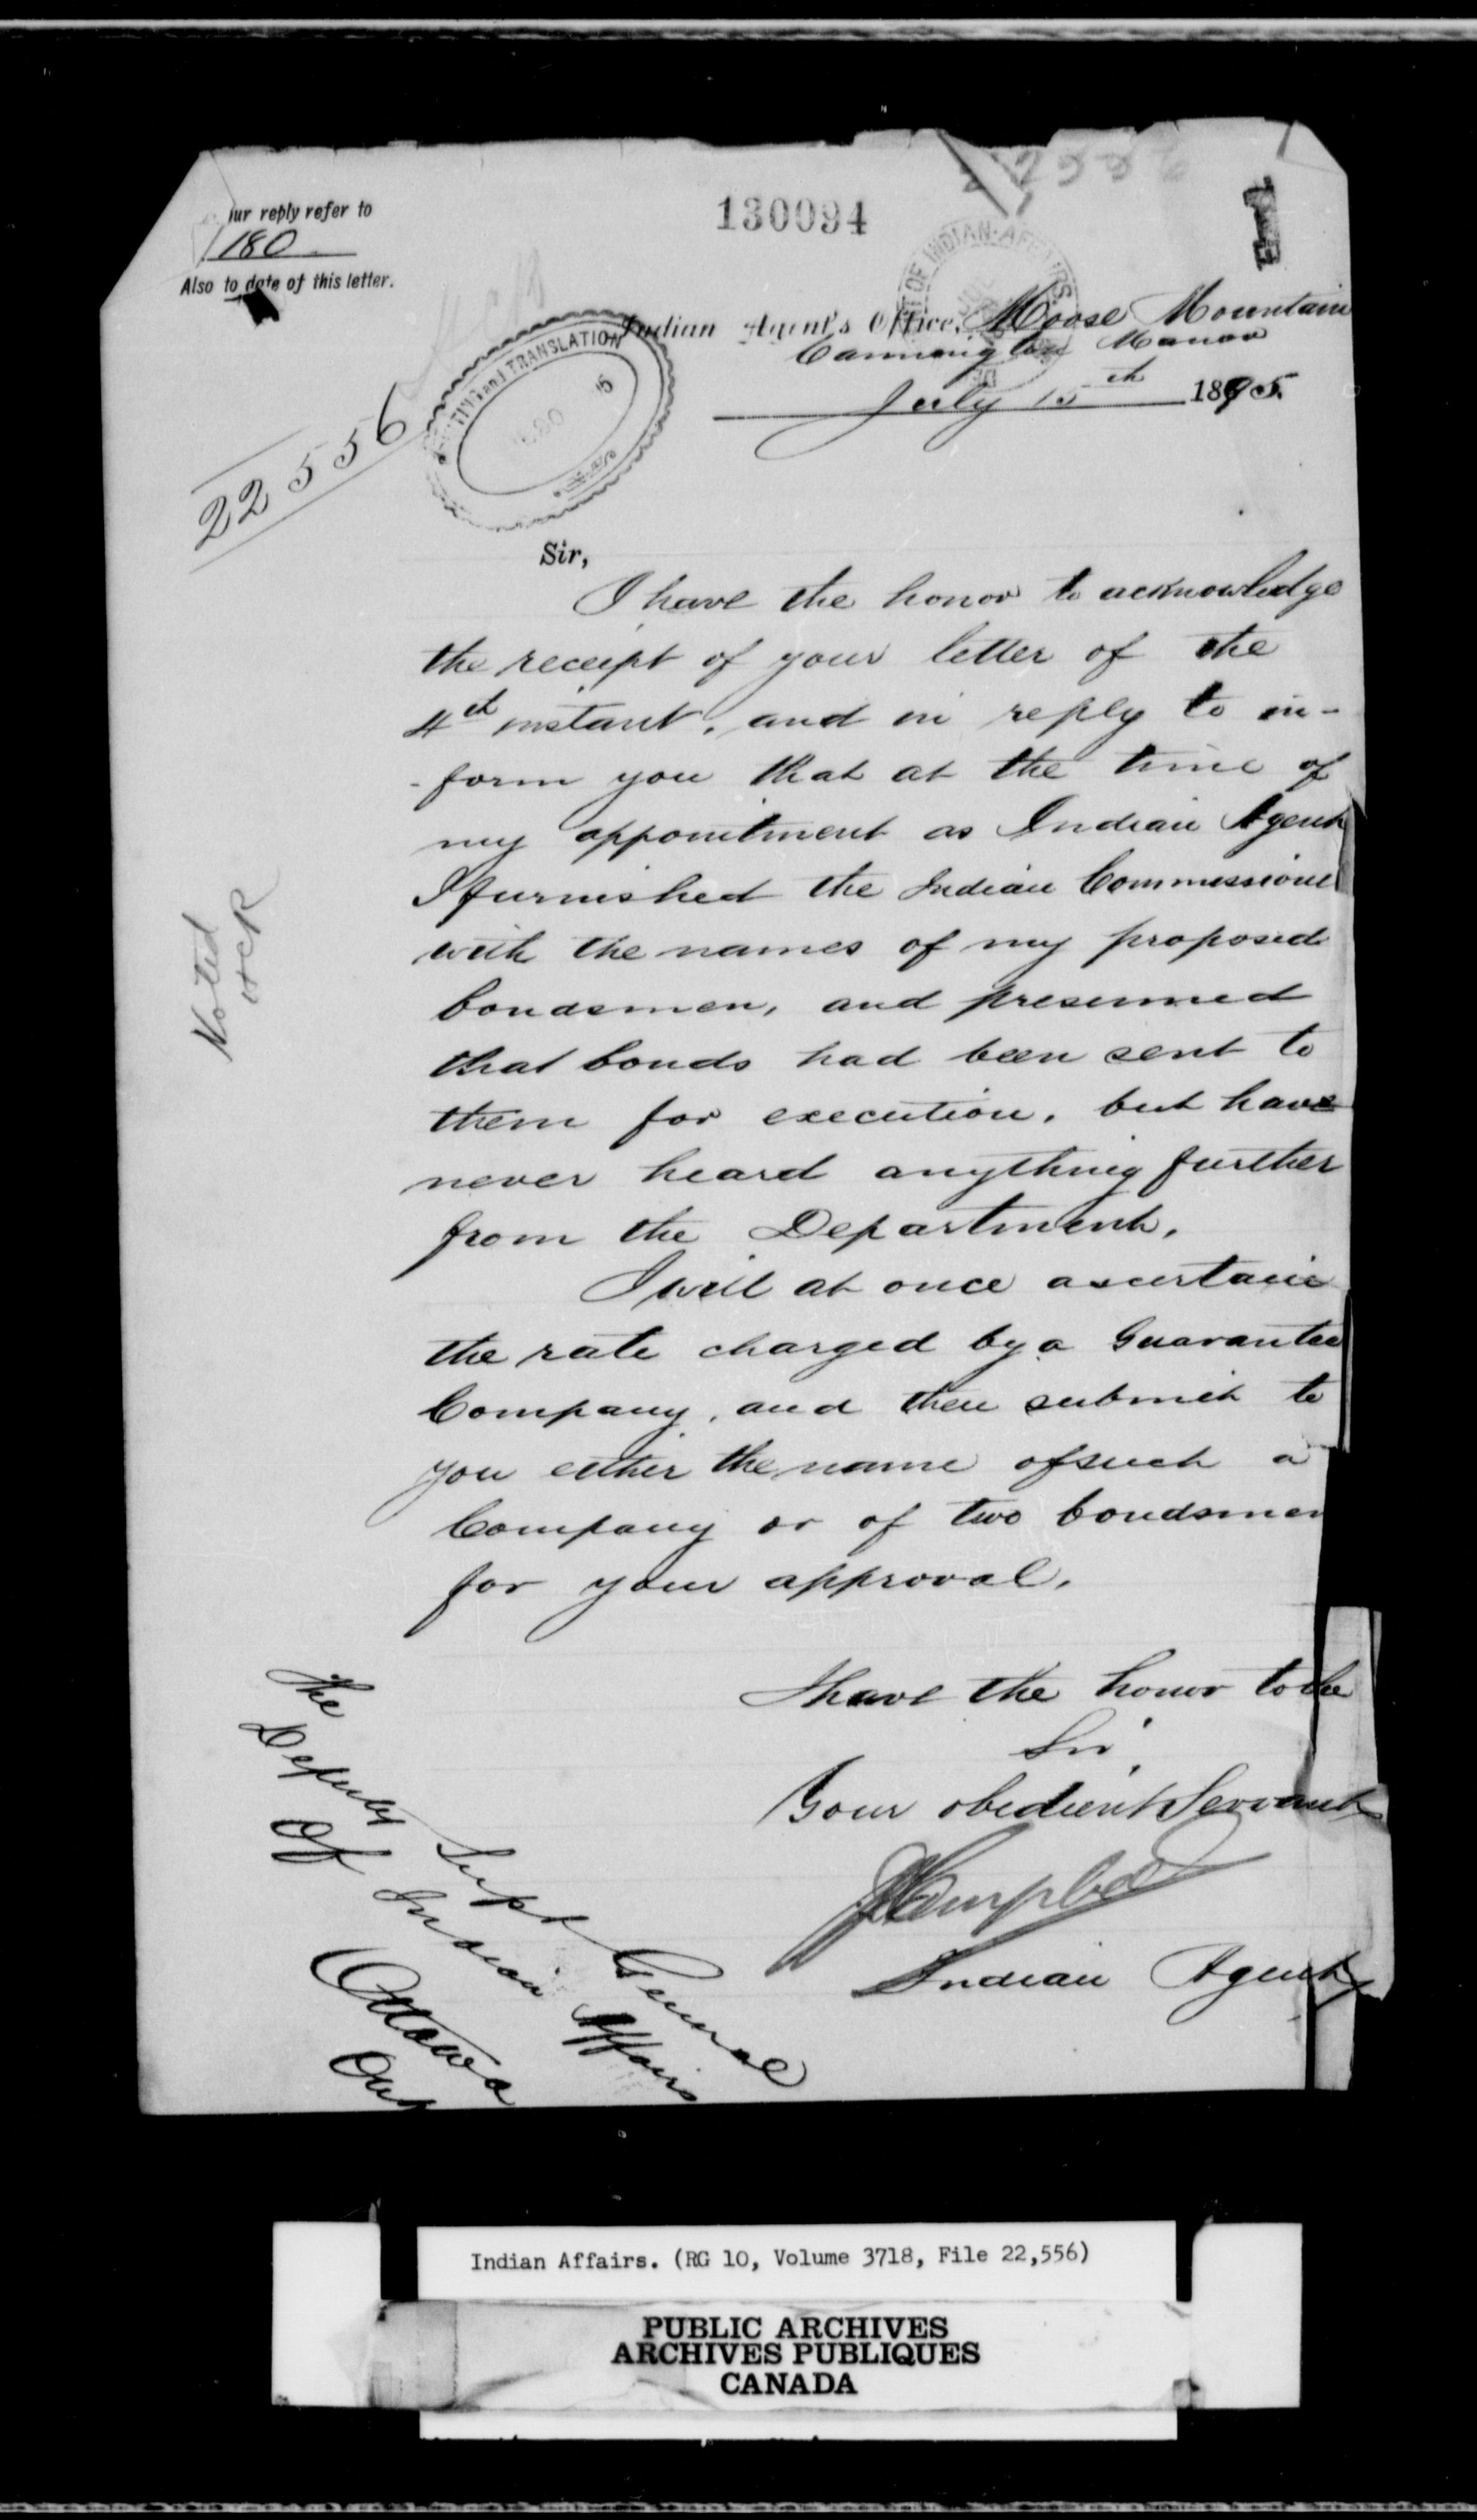 ur reply refer to
180
Also to date of this letter.
130094
Indian Agent's Office, Moose Mountain
Cannington Manor
July 15th 1895.
22556
TRANSLATION
OF INDIAN AFFAIRS
Sir,
I have the honor to acknowledge
the receipt of your letter of the
4th instant, and in reply to in-
-form you that at the time of
my appointment as Indian Agent
I furnished the Indian Commissioner
with the names of my proposed
bondsmen, and presumed
that bonds had been sent to
them for execution, but have
never heard anything further
from the Department.
I will at once ascertain
the rate charged by a Guarantee
Company, and then submit to
you either the name of such a
Company or of two bondsmen
for your approval.
Noted
HCR
I have the honor to be
Sir,
Your obedient Servant
Campbell
Indian Agent
The
Deputy Supt General
Of Indian Affairs
Ottawa
Ont
Indian Affairs. (RG 10, Volume 3718, File 22,556)
PUBLIC ARCHIVES
ARCHIVES PUBLIQUES
CANADA